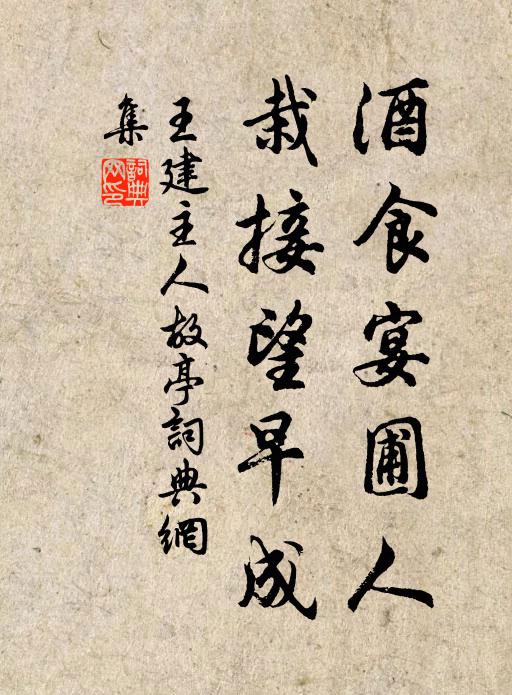 酒食宴圃人
栽接望早成
王建主人故亭詞典網
集
詞典網印